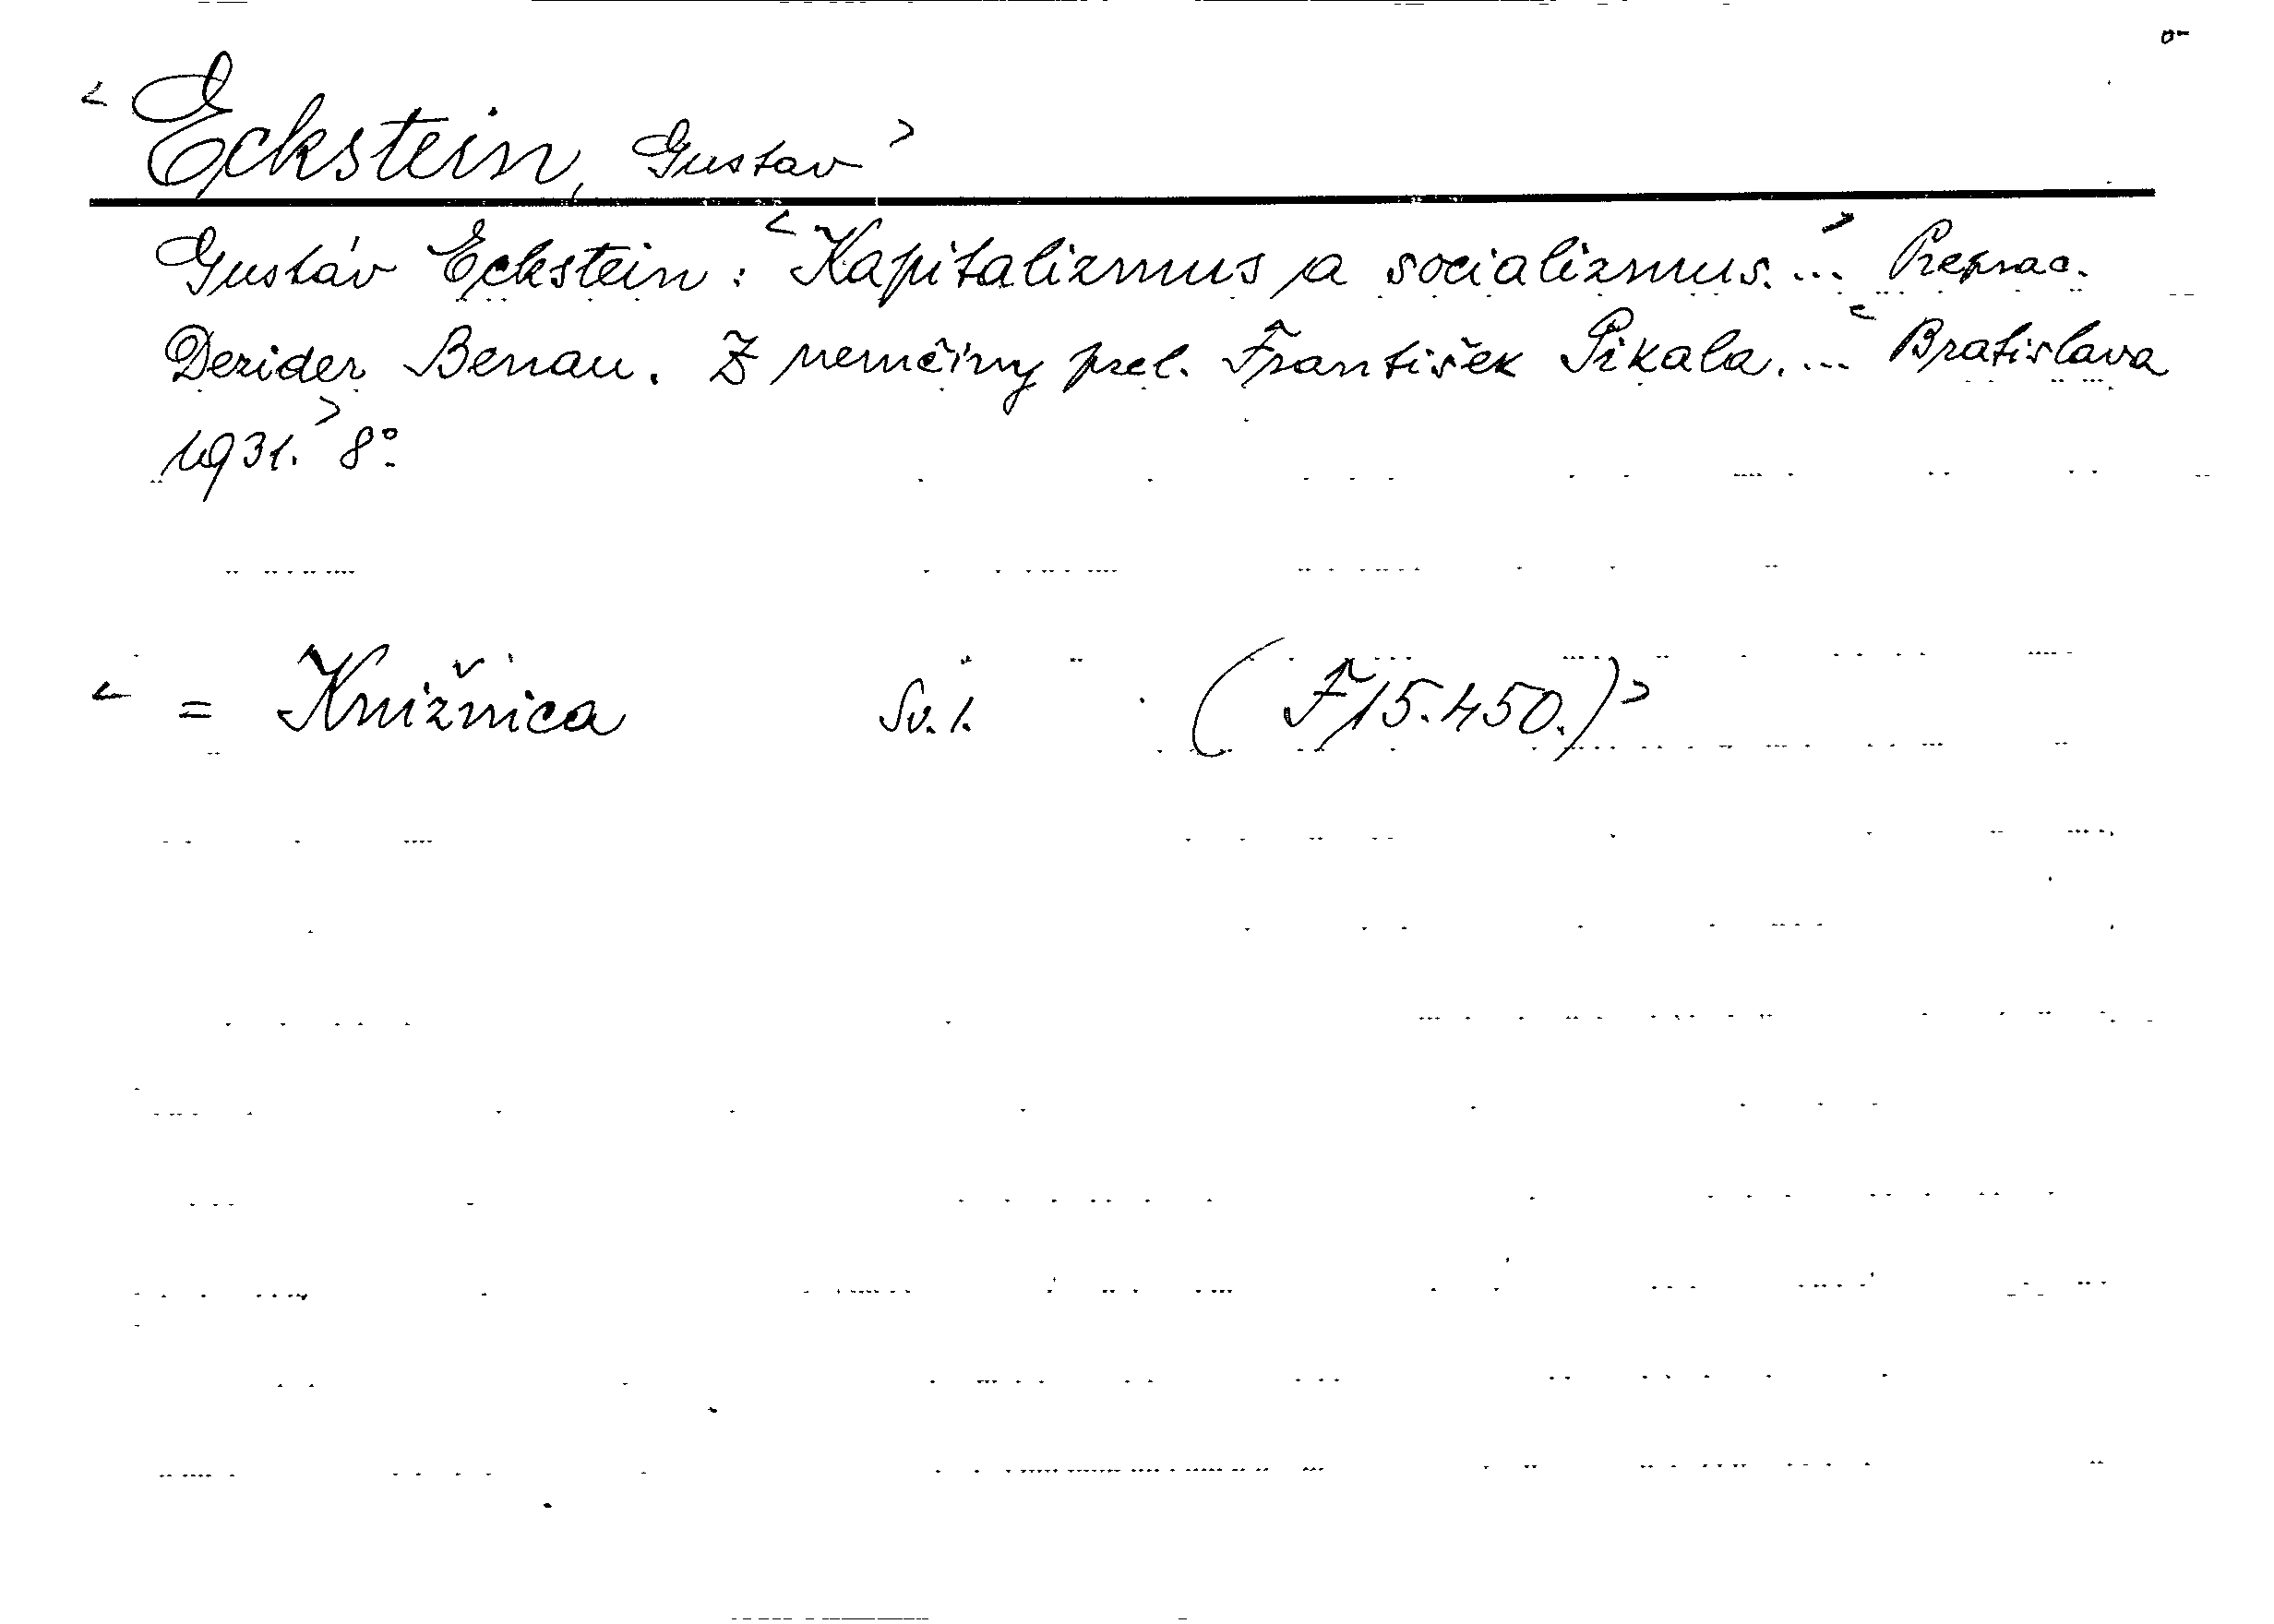 < Eckstein, Gustav >
Gustáv Eckstein: < Kapitalizmus a socializmus. ... > Preprac.
Dezider Benau. Z nemčiny prel. František Pikala. ... < Bratislava
1931. > 8°
< = Knižnica Sv. 1. (F 15.450.) >